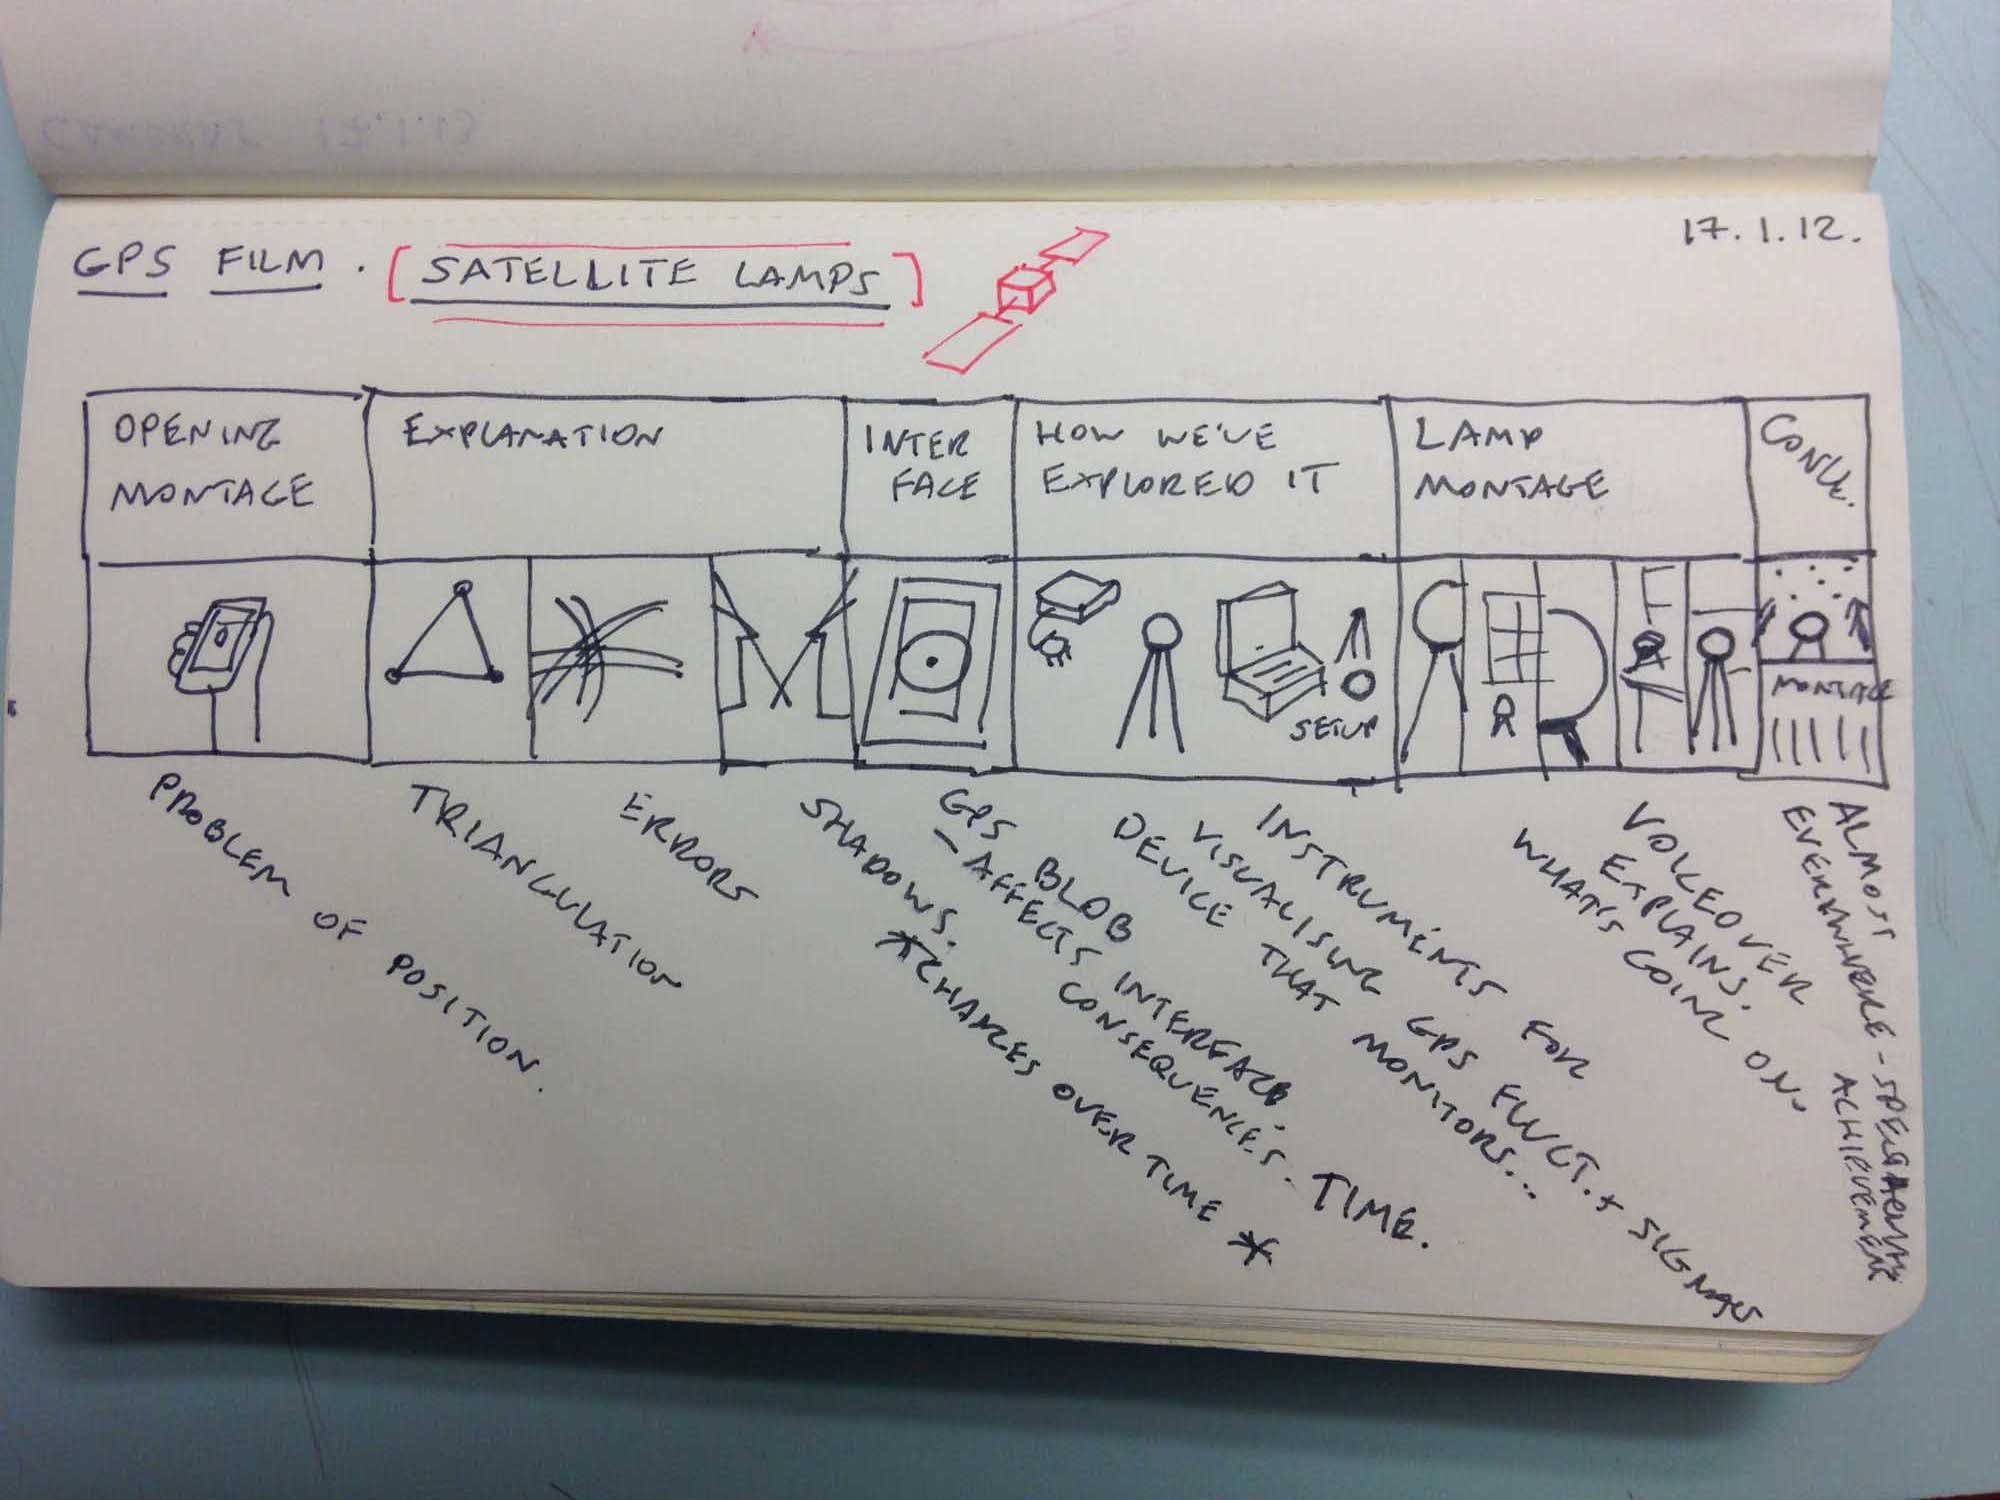 CAMERAS 17.1.13
17.1.12.
GPS FILM. [SATELLITE LAMPS]
OPENING
MONTAGE
EXPLANATION
INTER
FACE
HOW WE'VE
EXPLORED IT
LAMP
MONTAGE
CONCL.
SETUP
MONTAGE
PROBLEM OF POSITION.
TRIANGULATION
ERRORS
SHADOWS.
*CHANGES OVER TIME *
GPS BLOB
- AFFECTS INTERFACE.
CONSEQUENCES. TIME.
DEVICE THAT MONITORS...
INSTRUMENTS FOR
VISUALISING GPS FLUCT. + SIGNALS
VOICEOVER
EXPLAINS.
WHAT'S GOING ON.
ALMOST
EVERYWHERE -
ACHIEVEMENT